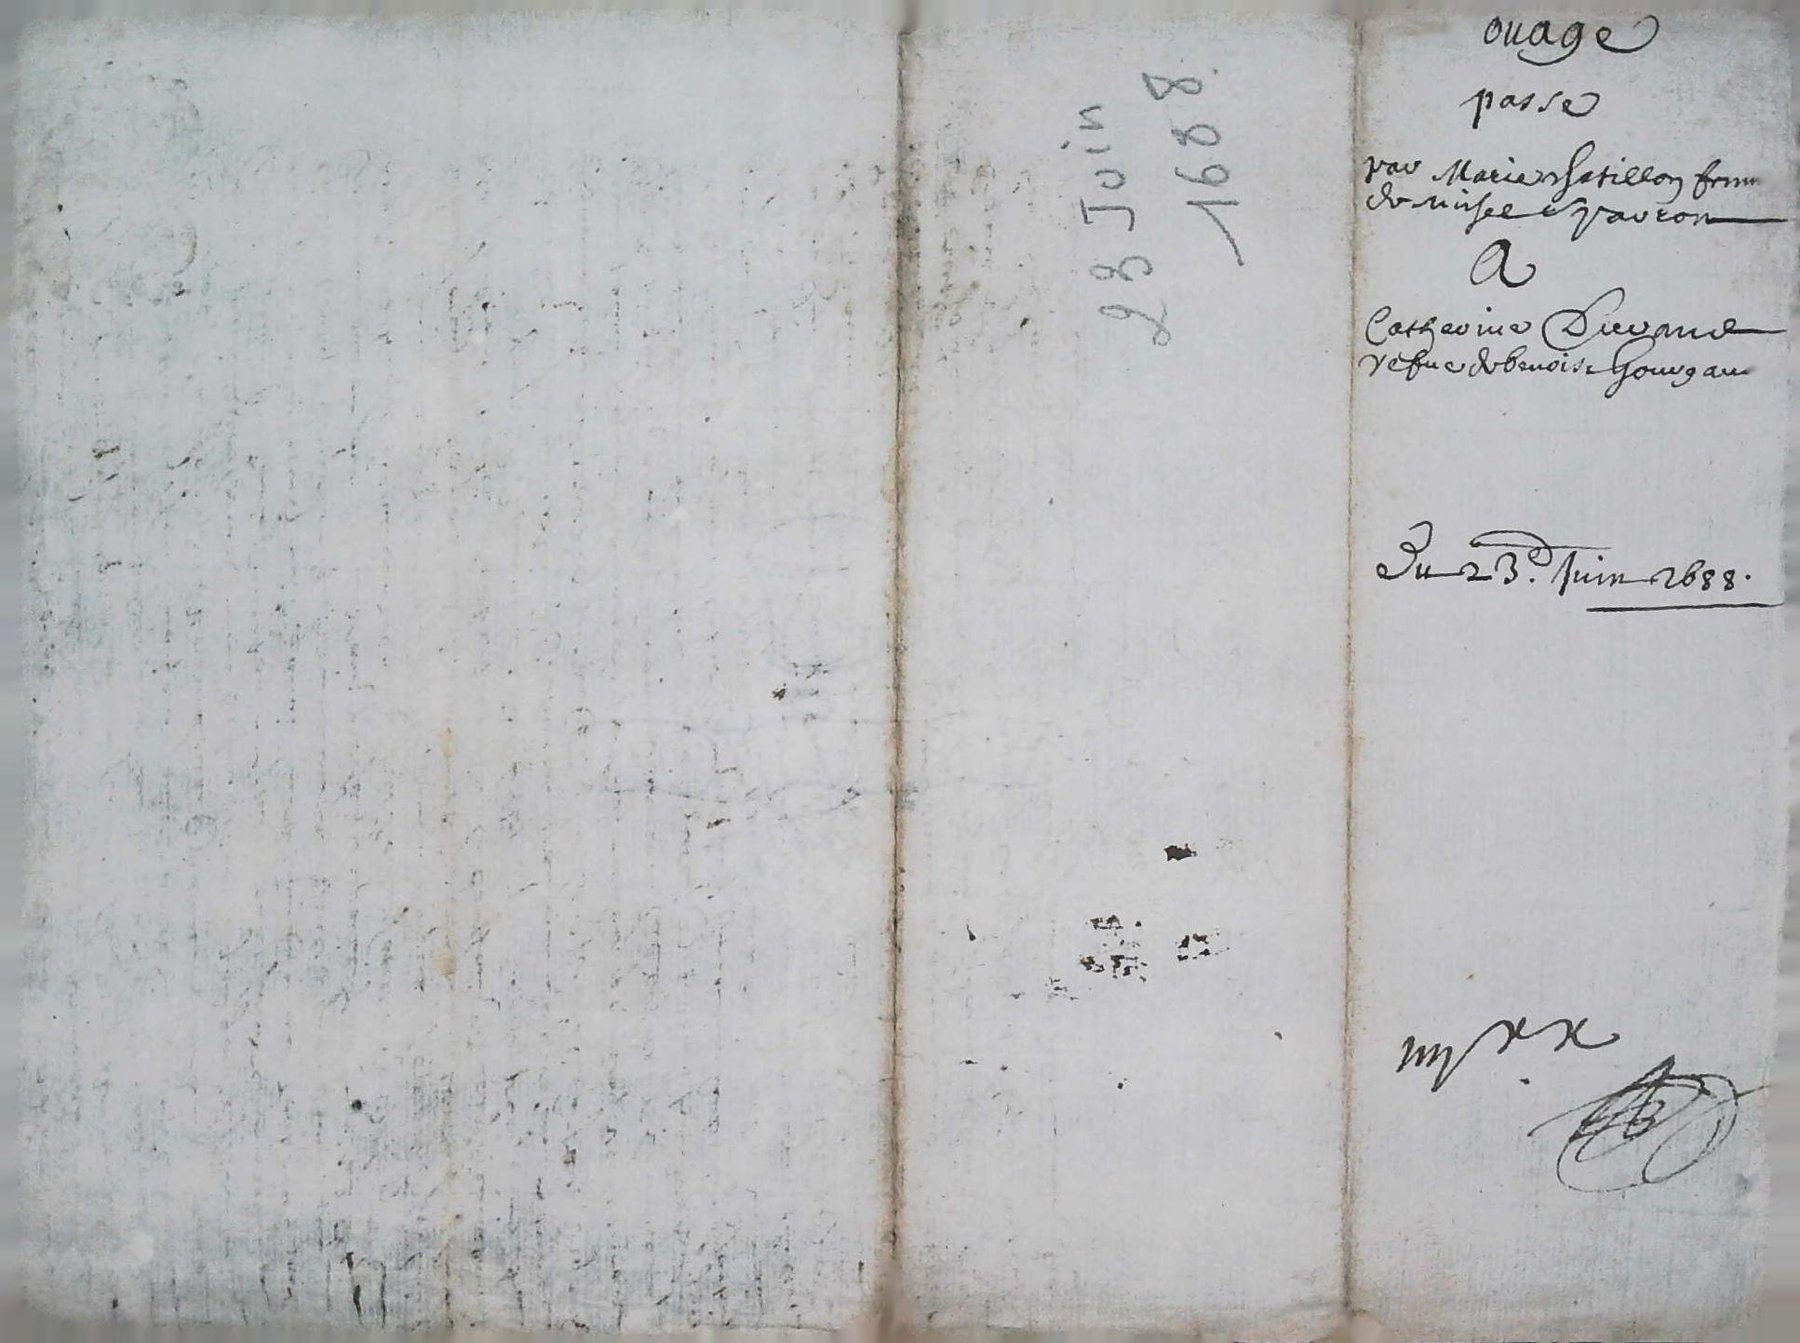 23 Juin
1688
ouage
passe
par Marie Chatillon femme
de michel pavron
A
Catherine Durand
vefue de benoist Gourgan
Du 23e. Juin 1688.